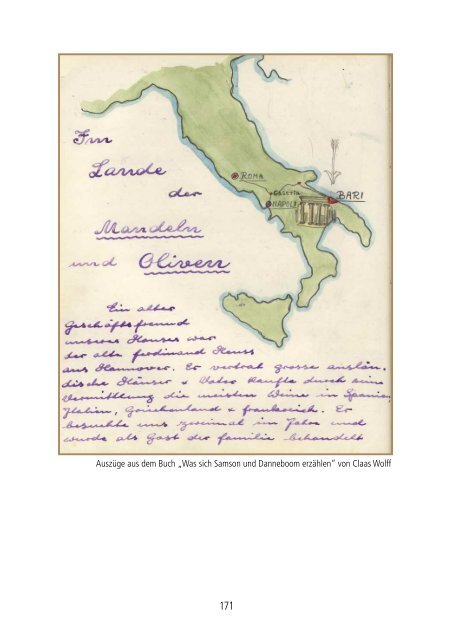 Im
Lande
der
Mandeln
und Oliven
ROMA
Caserta
NAPOLI
BARI
Ein alter
Geschäftsfreund
unseres Hauses war
der alte Ferdinand Heuss
aus Hannover. Er vertrat grosse auslän-
dische Häuser & Vater kaufte durch seine
Vermittlung die meisten Weine in Spanien,
Italien, Griechenland & Frankreich. Er
besuchte uns zweimal im Jahre und
wurde als Gast der Familie behandelt
Auszüge aus dem Buch „Was sich Samson und Danneboom erzählen“ von Claas Wolff
171